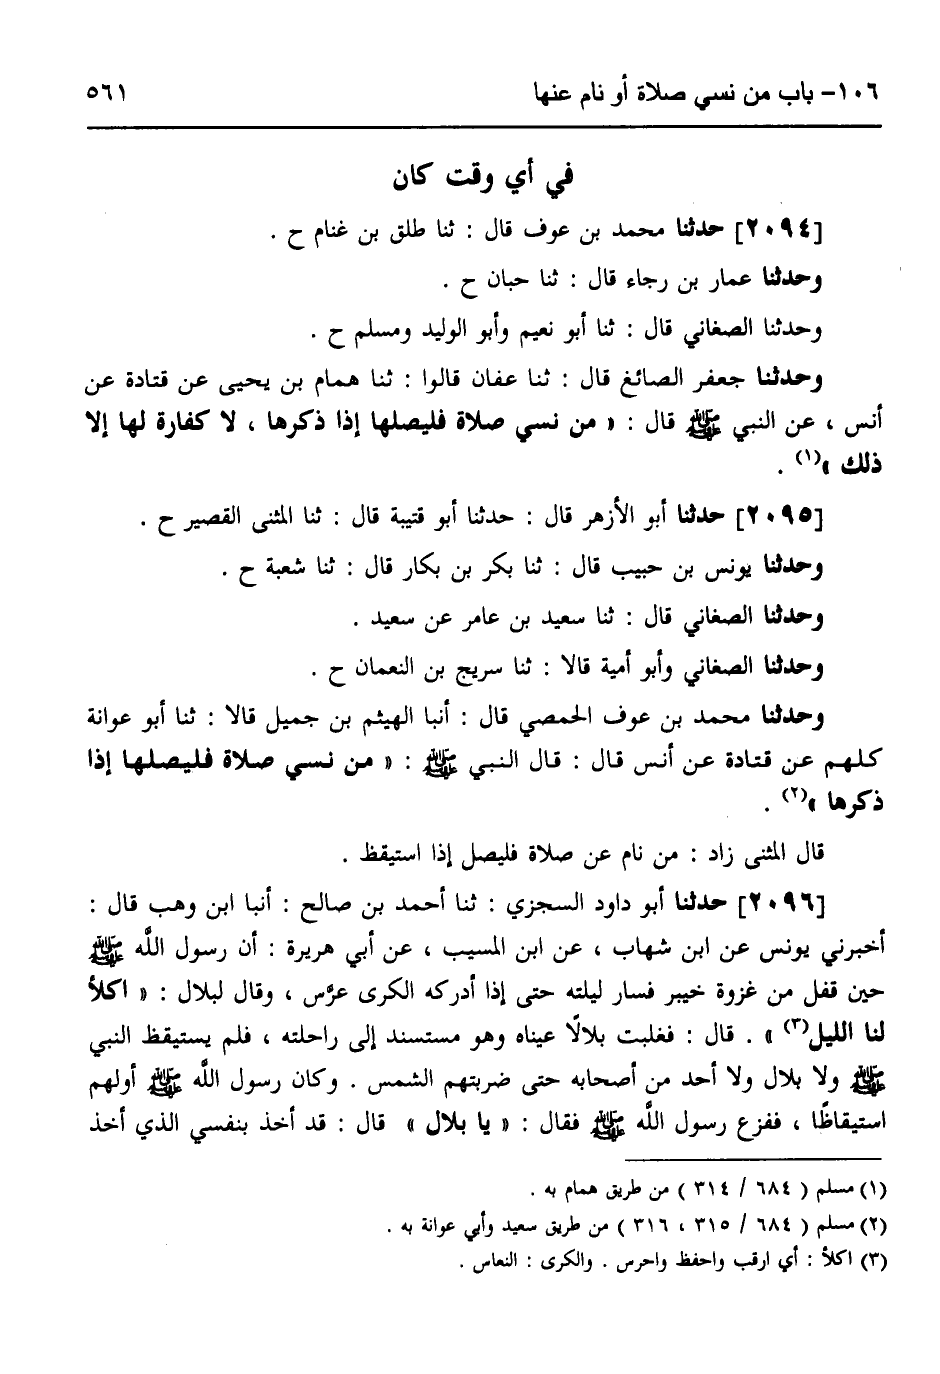 ١٠٦- باب من نسي صلاة أو نام عنها ٥٦١
في أي وقت كان
[٢٠٩٤] حدثنا محمد بن عوف قال : ثنا طلق بن غنام ح .
وحدثنا عمار بن رجاء قال : ثنا حبان ح .
وحدثنا الصغاني قال : ثنا أبو نعيم وأبو الوليد ومسلم ح .
وحدثنا جعفر الصائغ قال : ثنا عفان قالوا : ثنا همام بن يحيى عن قتادة عن
أنس ، عن النبي ﷺ قال : « من نسي صلاة فليصلها إذا ذكرها ، لا كفارة لها إلا
ذلك »(١) .
[٢٠٩٥] حدثنا أبو الأزهر قال : حدثنا أبو قتيبة قال : ثنا المثنى القصير ح .
وحدثنا يونس بن حبيب قال : ثنا بكر بن بكار قال : ثنا شعبة ح .
وحدثنا الصغاني قال : ثنا سعيد بن عامر عن سعيد .
وحدثنا الصغاني وأبو أمية قالا : ثنا سريج بن النعمان ح .
وحدثنا محمد بن عوف الحمصي قال : أنبا الهيثم بن جميل قالا : ثنا أبو عوانة
كلهم عن قتادة عن أنس قال : قال النبي ﷺ : « من نسي صلاة فليصلها إذا
ذكرها »(٢) .
قال المثنى زاد : من نام عن صلاة فليصل إذا استيقظ .
[٢٠٩٦] حدثنا أبو داود السجزي : ثنا أحمد بن صالح : أنبا ابن وهب قال :
أخبرني يونس عن ابن شهاب ، عن ابن المسيب ، عن أبي هريرة : أن رسول اللَّه ﷺ
حين قفل من غزوة خيبر فسار ليلته حتى إذا أدركه الكرى عرَّس ، وقال لبلال : « اكلأ
لنا الليل(٣) » . قال : فغلبت بلالًا عيناه وهو مستسند إلى راحلته ، فلم يستيقظ النبي
ﷺ ولا بلال ولا أحد من أصحابه حتى ضربتهم الشمس . وكان رسول اللَّه ﷺ أولهم
استيقاظًا ، ففزع رسول اللَّه ﷺ فقال : « يا بلال » قال : قد أخذ بنفسي الذي أخذ
(١) مسلم ( ٦٨٤ / ٣١٤ ) من طريق همام به .
(٢) مسلم ( ٦٨٤ / ٣١٥ ، ٣١٦ ) من طريق سعيد وأبي عوانة به .
(٣) اكلأ : أي ارقب واحفظ واحرس . والكرى : النعاس .